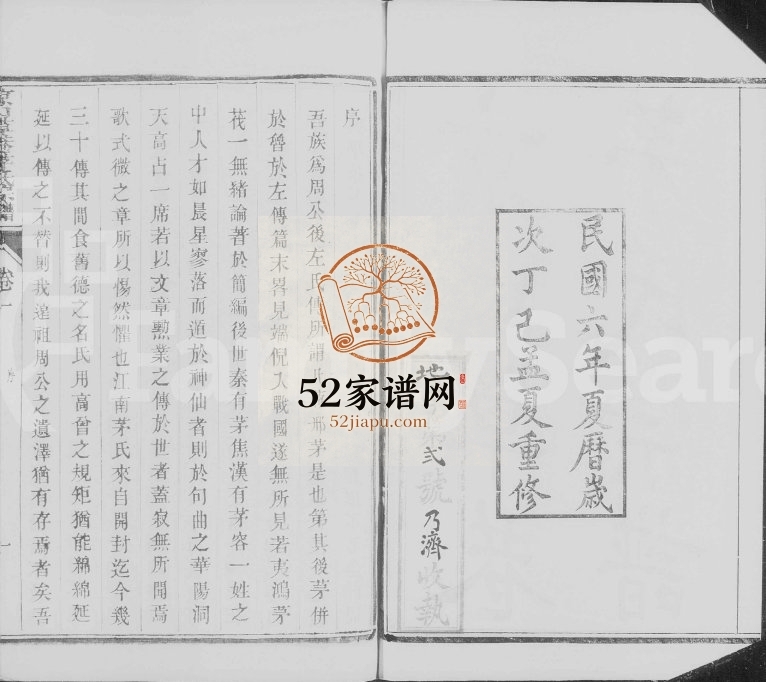 民國六年夏曆歲
次丁巳孟夏重修
地
弍號乃濟收執
序
吾族爲周公後左氏傳所謂
邢茅是也第其後茅併
於魯於左傳篇末畧見端倪入戰國遂無所見若夷鴻茅
茷一無緒論著於簡編後世秦有茅焦漢有茅容一姓之
中人才如晨星寥落而遁於神仙者則於句曲之華陽洞
天高占一席若以文章勲業之傳於世者蓋寂無所聞焉
歌式微之章所以惕然懼也江南茅氏來自開封迄今幾
三十傳其間食舊德之名氏用高曾之規矩猶能緜緜延
延以傳之不替則我遑祖周公之遺澤猶有存焉者矣吾
卷一
序
一
52家谱网
52jiapu.com